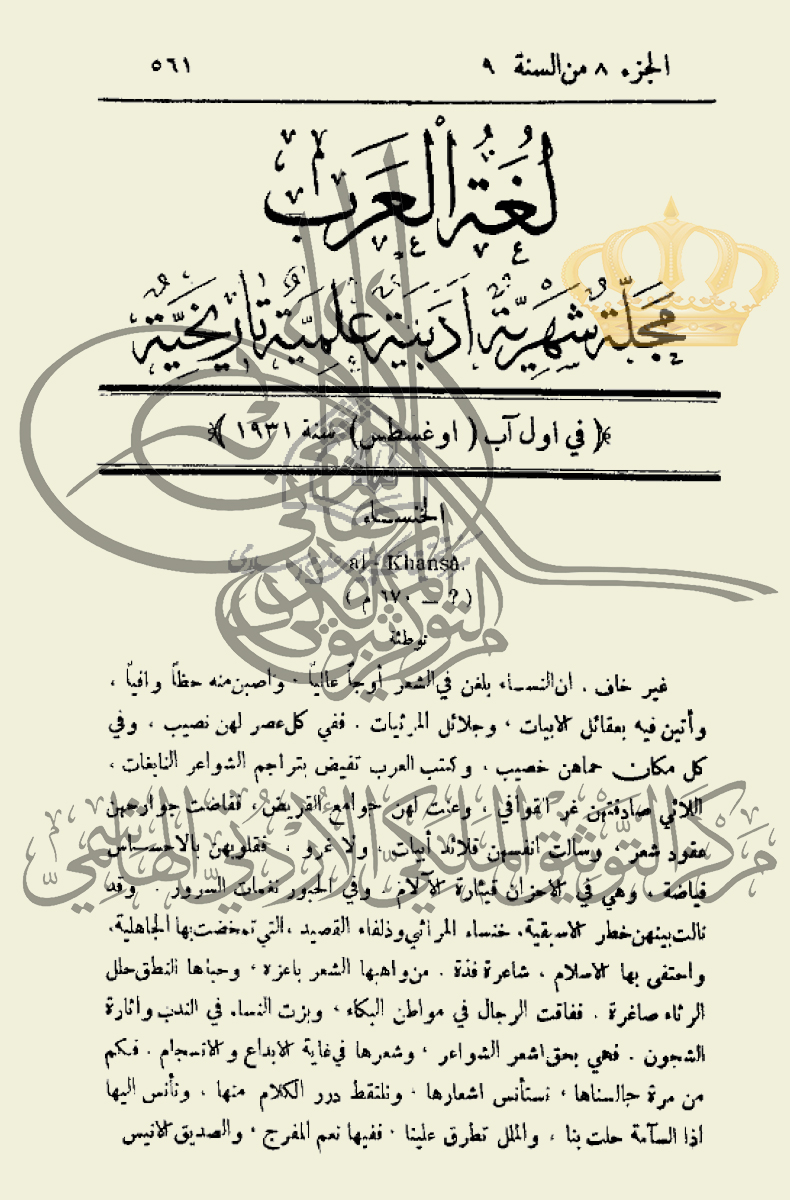 الجزء ٨ من السنة ٩
٥٦١
لُغَةُ الْعَرَب
مَجَلَّة شَهْرِيَّة أَدَبِيَّة عِلْمِيَّة تَأْرِيخِيَّة
﴿ في اول آب ( اوغسطس ) سنة ١٩٣١ ﴾
الخنساء
al - Khansâ.
( ? — ٦٧٠ م )
توطئة
غير خاف ، ان النساء بلغن في الشعر أوجاً عالياً ، وأصبن منه حظاً وافياً ،
وأتين فيه بعقائل الابيات ، وجلائل المرئيات . ففي كل عصر لهن نصيب ، وفي
كل مكان حماهن خصيب ، وكتب العرب تفيض بتراجم الشواعر النابغات ،
اللائي صادفتهن غر القوافي ، وعنت لهن جوامع القريض ، ففاضت جوارحهن
عقود شعر ، وسالت انفسهن قلائد أبيات ، ولا غرو ، فقلوبهن بالاحساس
فياضة ، وهي في الاحزان قيثارة الآلام ، وفي الحبور نغمات السرور . وقد
نالت بينهن خطر الاسبقية ، خنساء المراثي وذلفاء القصيد ، التي تمخضت بها الجاهلية،
واحتفى بها الاسلام ، شاعرة فذة . من واهبها الشعر باعزه ، وحباها النطق حلل
الرثاء صاغرة . ففاقت الرجال في مواطن البكاء ، وبزت النساء في الندب واثارة
الشجون . فهي بحق اشعر الشواعر ، وشعرها في غاية الابداع والانسجام . فكم
من مرة جالسناها ، نستأنس اشعارها ، ونلتقط درر الكلام منها ، ونأنس اليها
اذا السآمة حلت بنا ، والملل تطرق علينا ، ففيها نعم المفرج ، والصديق الانيس
مركز التوثيق الملكي الاردني الهاشمي